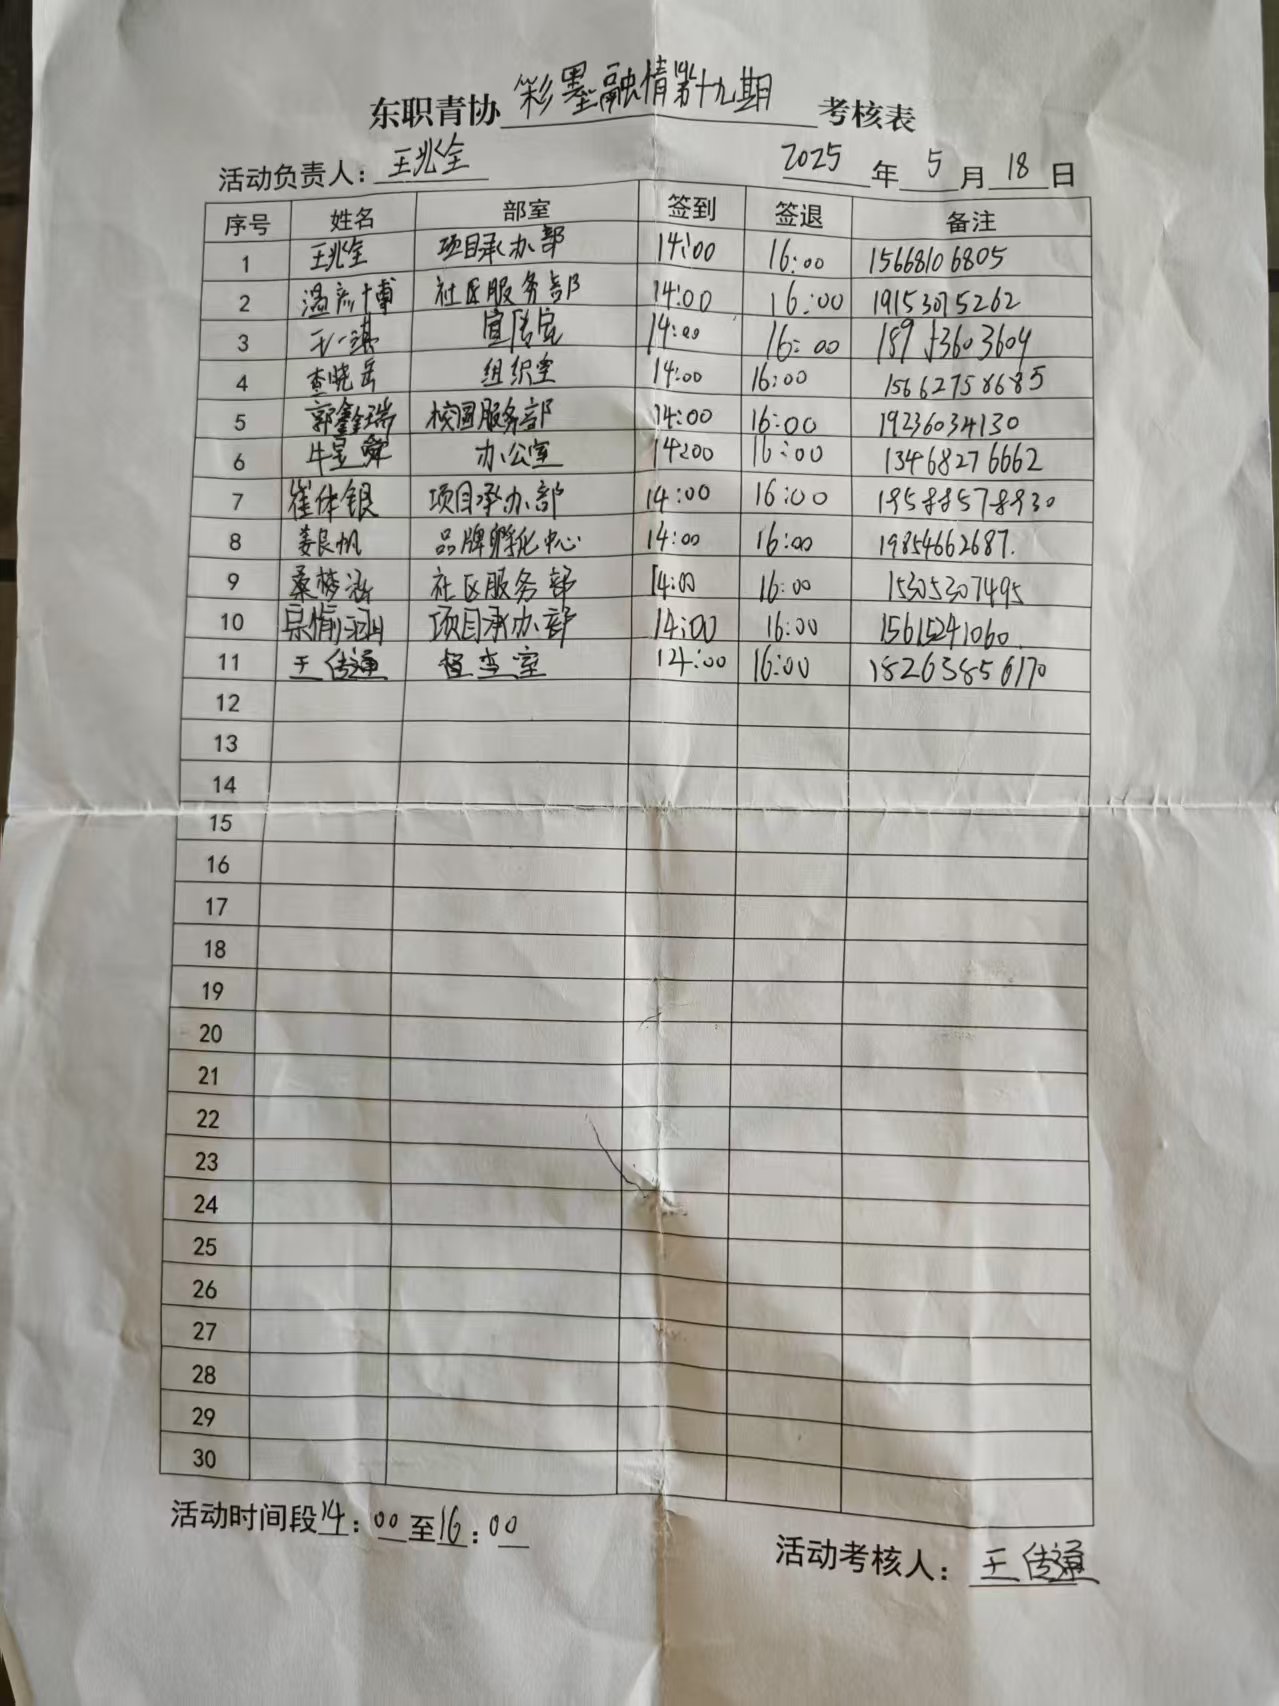 东职青协 彩墨融情第十九期 考核表
活动负责人: 王兆全 2025 年 5 月 18 日
序号 姓名 部室 签到 签退 备注
1 王兆全 项目承办部 14:00 16:00 15668106805
2 温彦博 社区服务部 14:00 16:00 19153015262
3 王一淇 宣传室 14:00 16:00 18953603604
4 查晓岳 组织室 14:00 16:00 15662758685
5 郭鑫瑞 校园服务部 14:00 16:00 19236034130
6 牛昱舜 办公室 14:00 16:00 13468276662
7 崔体银 项目承办部 14:00 16:00 19588578930
8 姜良帆 品牌孵化中心 14:00 16:00 19854662687.
9 桑梦涵 社区服务部 14:00 16:00 15305307495
10 项目承办部 14:00 16:00 15615241060
11 王传通 督查室 14:00 16:00 18265856170
12
13
14
15
16
17
18
19
20
21
22
23
24
25
26
27
28
29
30
活动时间段14:00至16:00
活动考核人: 王传通